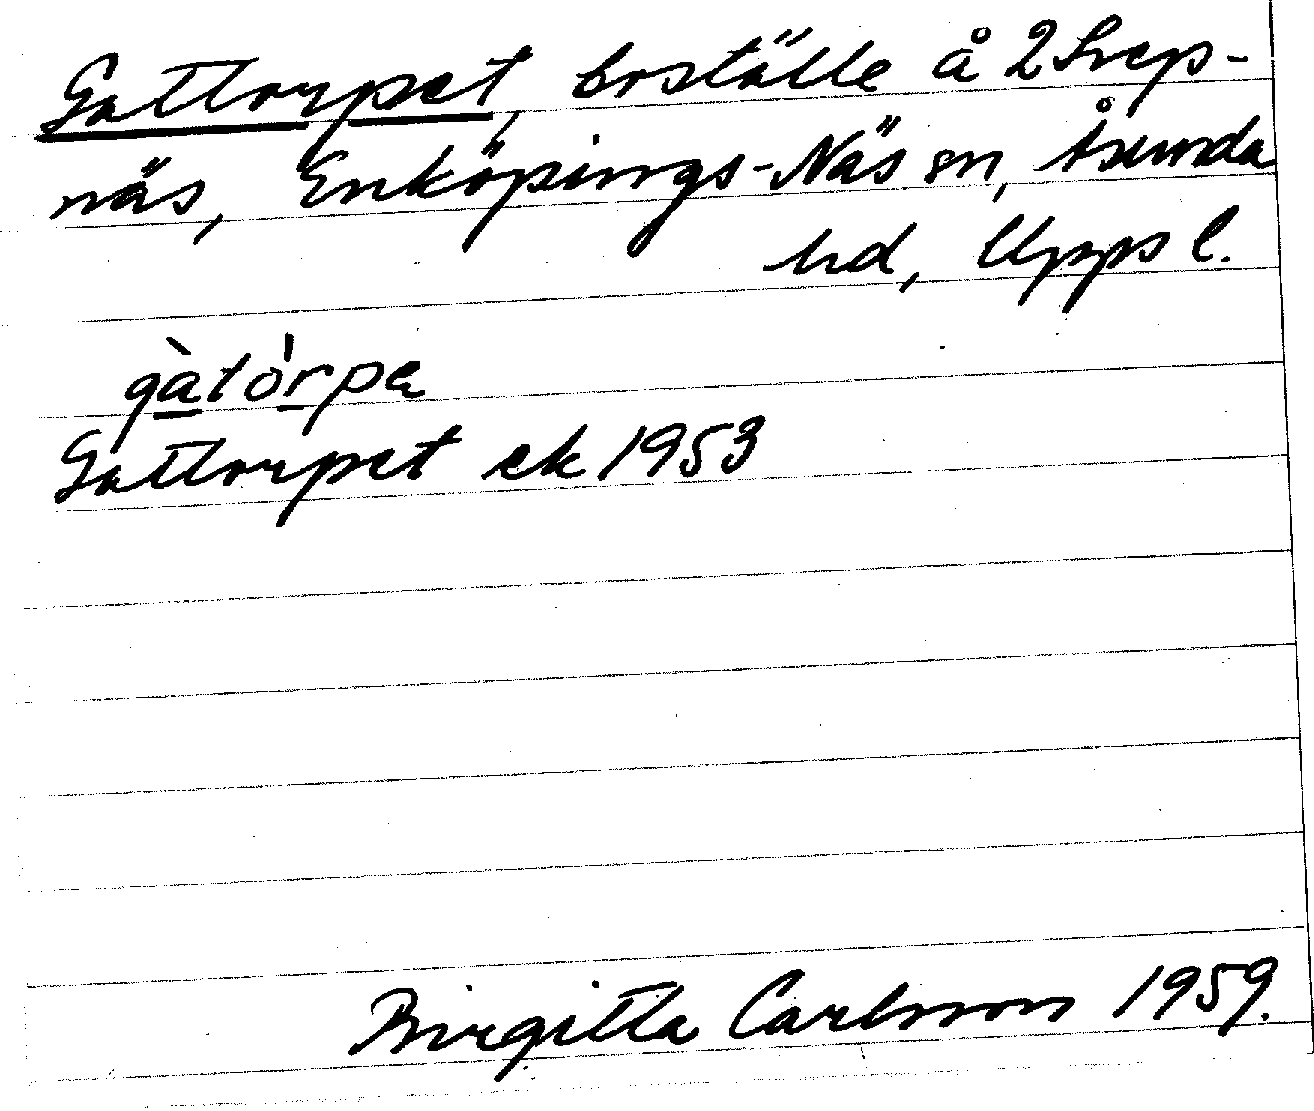 Gattorpet, boställe å 2 Svep-
näs, Enköpings-Näs sn, Åsunda
hd, Upps l.
gàtórpa
Gattorpet ek 1953
Birgitta Carlsson 1959.